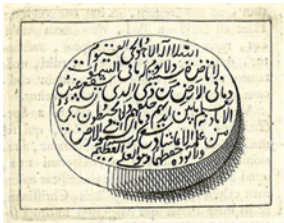 الله لا اله الا هو الحي القيوم
لا تاخذه سنة ولا نوم له ما في السموات
وما في الارض من ذي الذي يشفع عنده
الا باذنه يعلم ما بين ايديهم وما خلفهم ولا يحيطون بشي
من علمه الا بما شا وسع كرسيه الارض
ولا يوده حفظهما وهو العلي العظيم